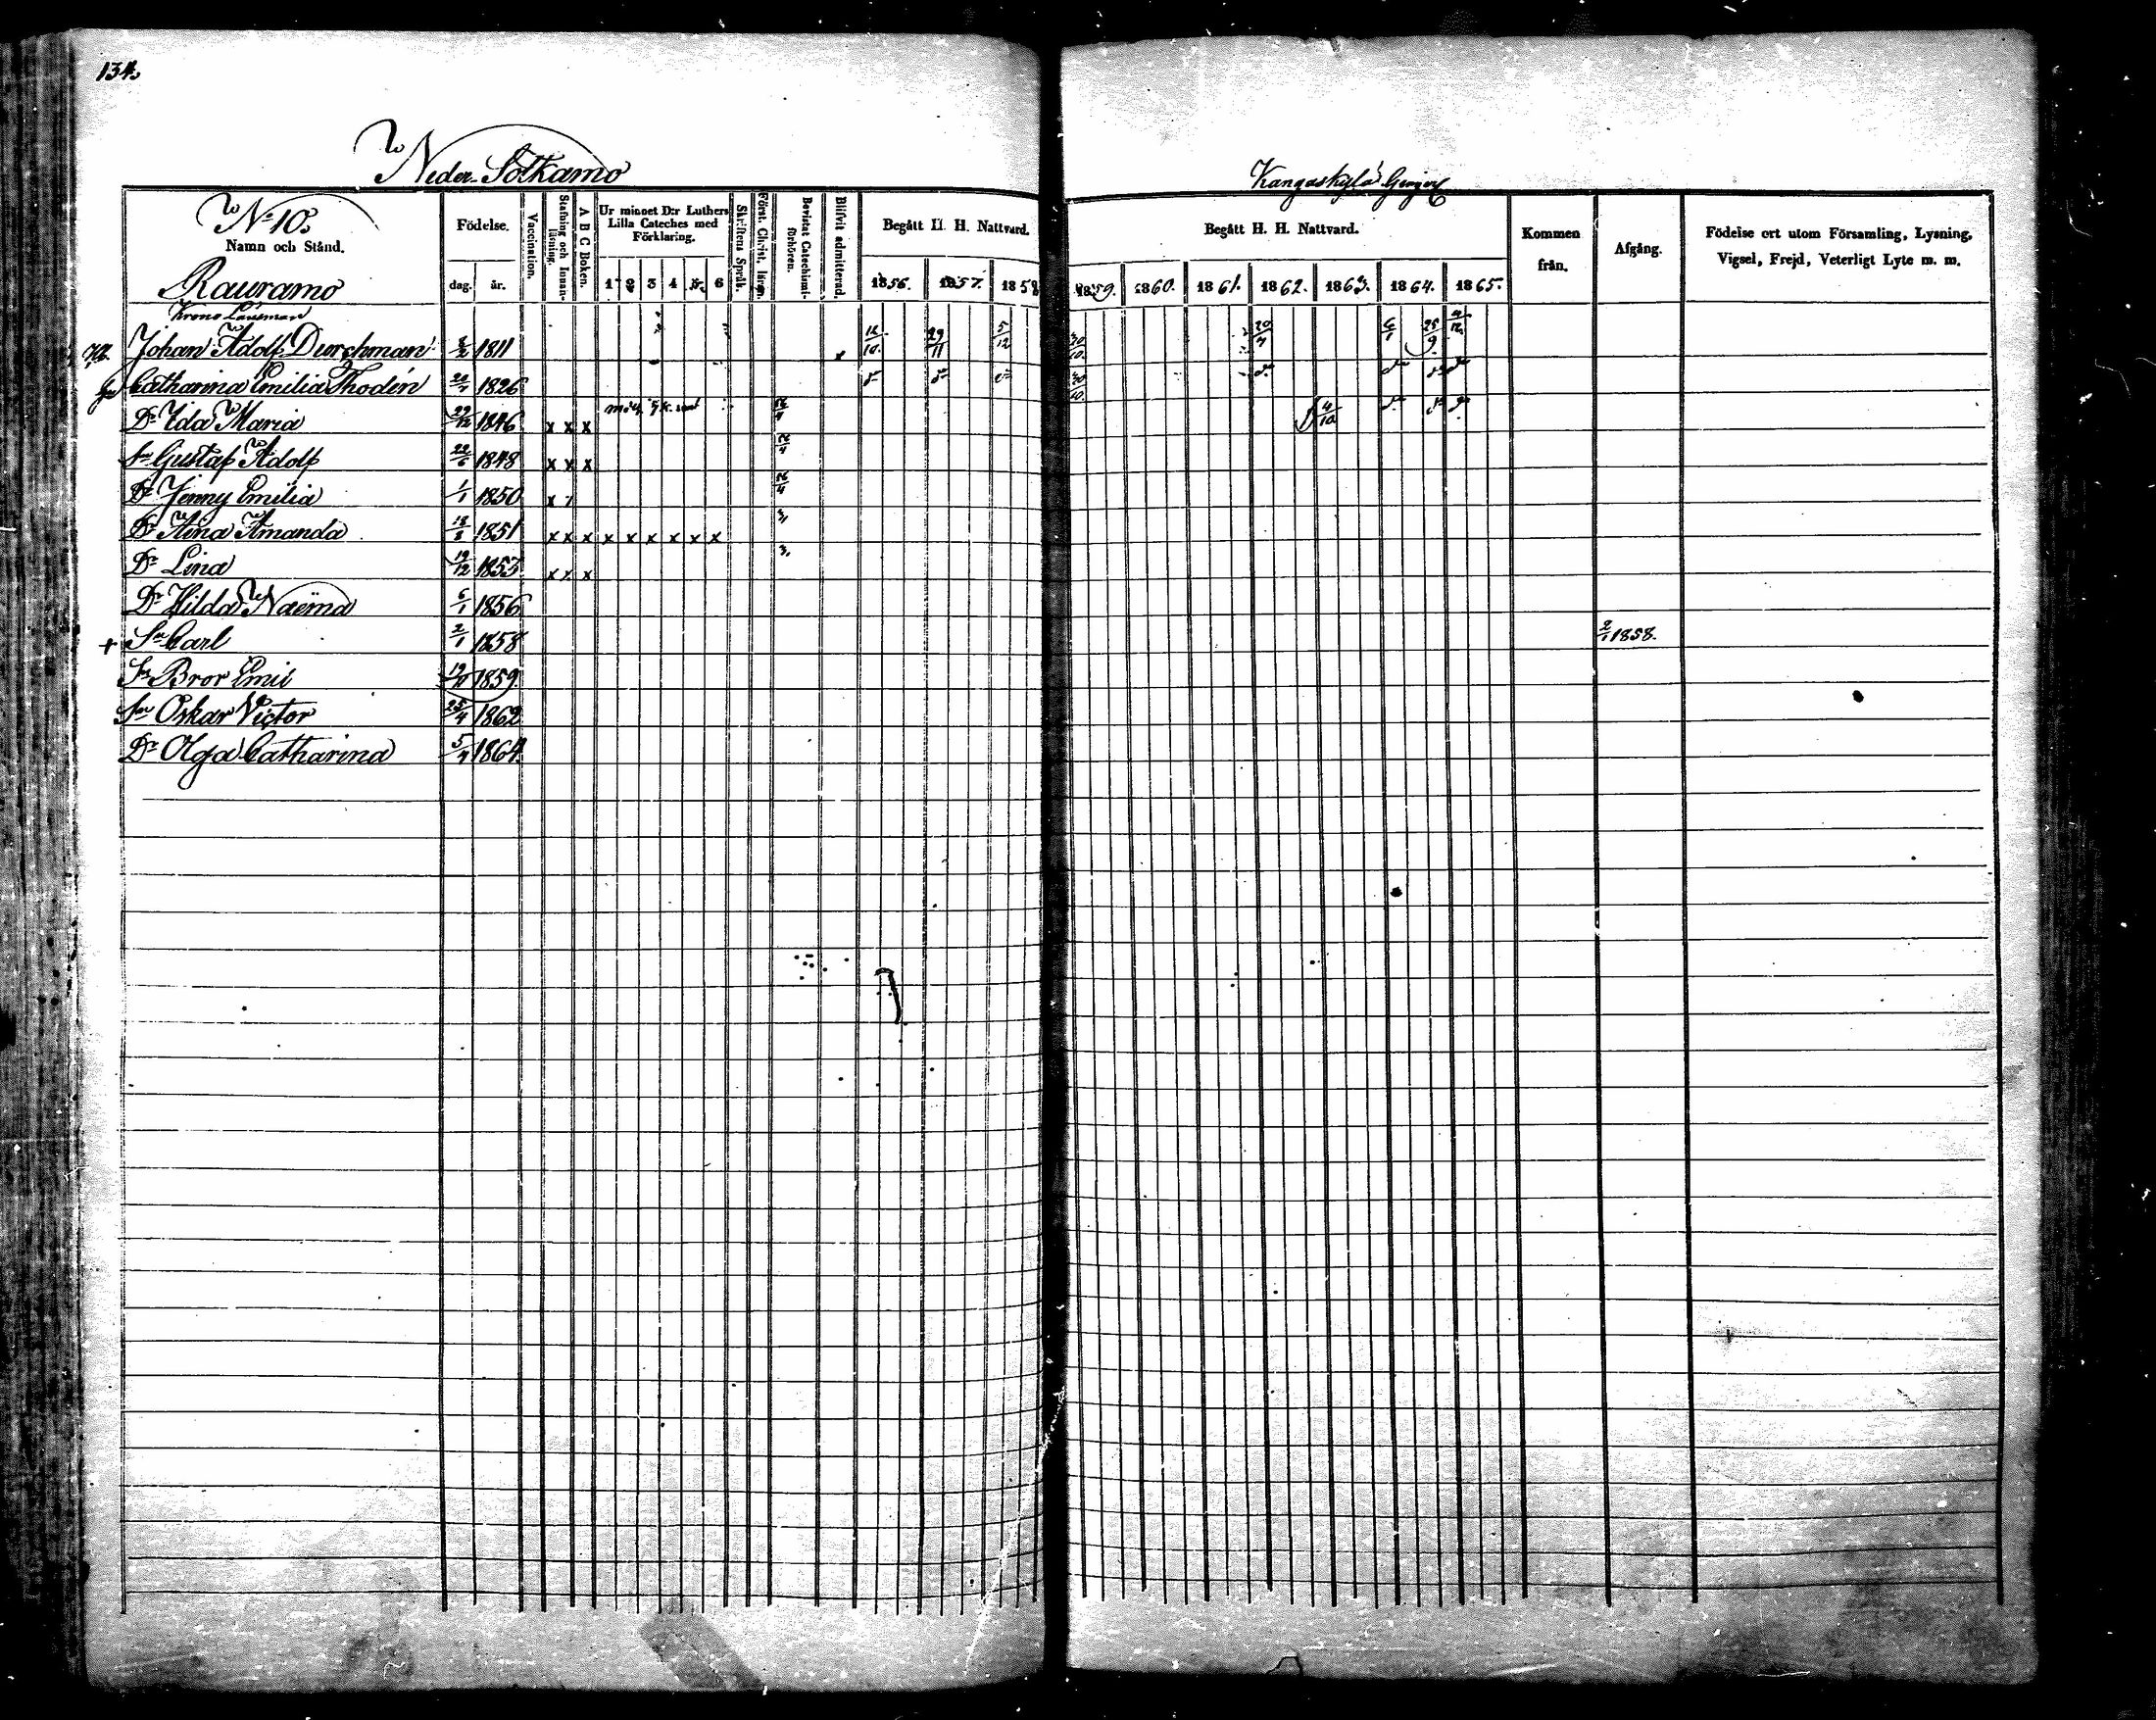 134.
Neder Sotkamo
Kangaskylä
No 10.
Namn och Stånd.
Födelse.
dag. år.
Vaccination.
Stafning och Innanläsning.
A B C Boken.
Ur minnet D:r Luthers Lilla Cateches med Förklaring.
1 2 3 4 5 6
Skriftens Språk.
Först. Christ. läran.
Bevistat Catechismiförhören.
Blifvit admitterad.
Begått H. H. Nattvard.
1856. 1857. 1858
Begått H. H. Nattvard.
1859. 1860. 1861. 1862. 1863. 1864. 1865.
Kommen från.
Afgång.
Födelse ort utom Församling, Lysning, Vigsel, Frejd, Veterligt Lyte m. m.
Rauramo
Krono Länsman
Johan Adolf Durchman 1811 29/11 5/12
Catharina Emilia Thodén 1826
Dr Ida Maria 29/12 1846 x x x 4/10
Sn Gustaf Adolf 22/6 1848 x x x
Dr Jenny Emilia 1/1 1850 x x
Dr Aina Amanda 1851 x x x x x x x x x
Dr Lina 19/12 1853 x x x
Dr Hilda Naëma 6/1 1856
+ Sn Carl 2/1 1858 2/1 1858.
Sn Bror Emil 1859
Sn Oskar Victor 25/4 1862
Dr Olga Catharina 1864.